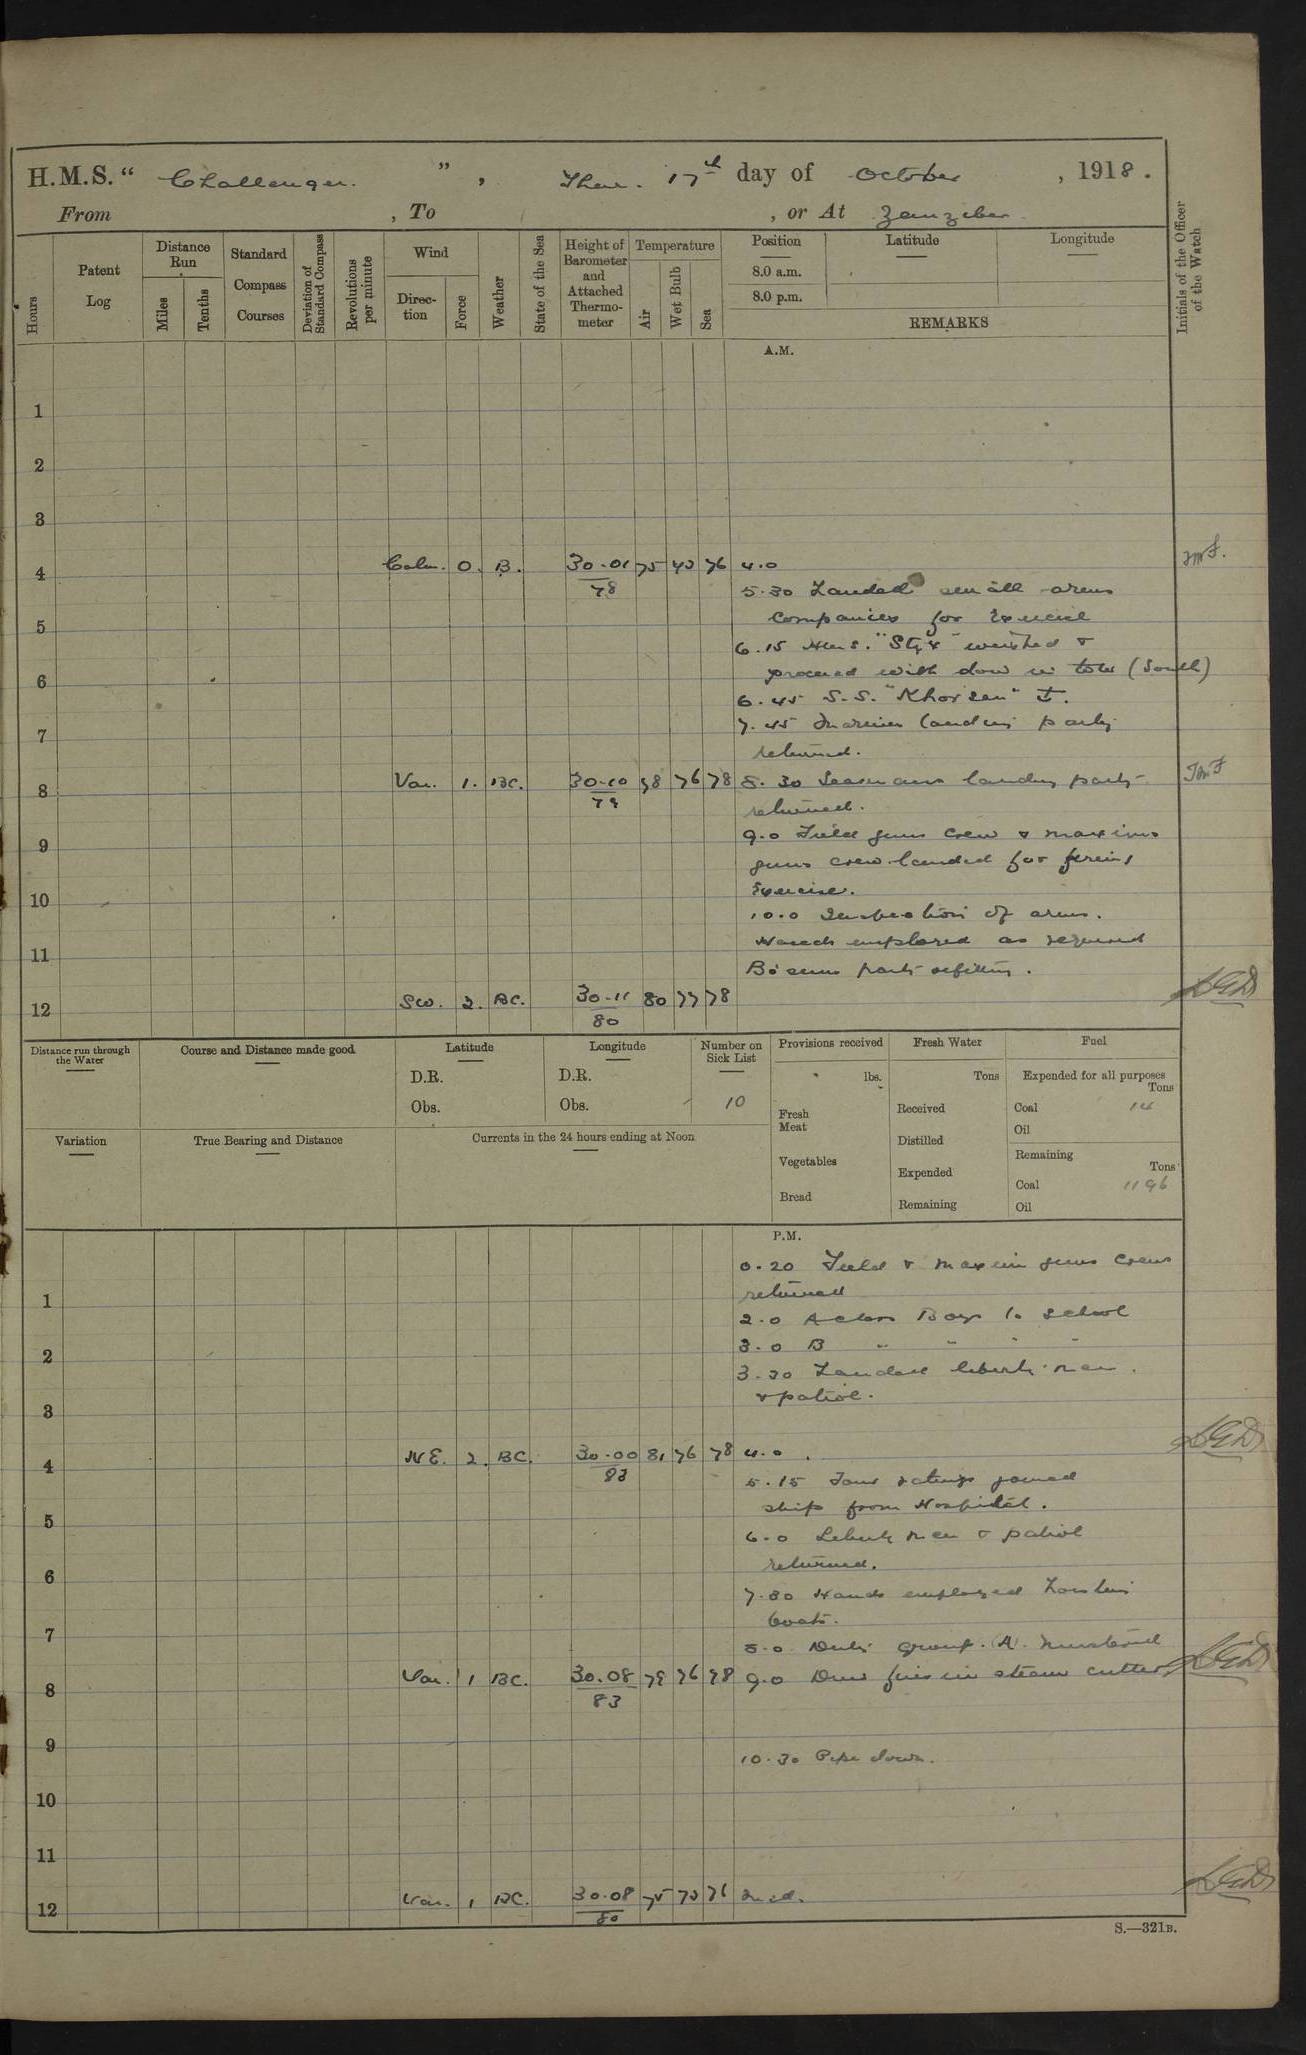 H.M.S. “ Challenger. ” , Thur. 17th day of October , 1918 .
From , To , or At Zanzibar.
Hours
Patent Log
Distance Run
Miles
Tenths
Standard Compass Courses
Deviation of Standard Compass
Revolutions per minute
Wind
Direction
Force
Weather
State of the Sea
Height of Barometer and Attached Thermometer
Temperature
Air
Wet Bulb
Sea
Position
8.0 a.m.
8.0 p.m.
Latitude
Longitude
REMARKS
Initials of the Officer of the Watch
A.M.
1
2
3
4 Calm. 0. B. 30.01 75 73 76 4.0
78
5.30 Landed small arms
5 companies for Exercise
6.15 H.M.S. weighed &
6 proceed with dow in tow (South)
6.45 S.S.
7 7.45 Marines landing party
returned.
8 Var. 1. BC. 30.10 78 76 78 8.30 Seamans landing party
79
returned.
9 9.0 Field guns crew & maxims
guns crew landed for firing
10 Exercise.
10.0 Inspection of arms.
11 Hands employed as required
Bo'suns party refitting.
12 SW. 2. BC. 30.11 80 77 78
80
Distance run through the Water
Course and Distance made good
Latitude
D.R.
Obs.
Longitude
D.R.
Obs.
Number on Sick List
10
Provisions received
lbs.
Fresh Meat
Vegetables
Bread
Fresh Water
Tons
Received
Distilled
Expended
Remaining
Fuel
Expended for all purposes
Tons
Coal 14
Oil
Remaining
Tons
Coal 1196
Oil
Variation
True Bearing and Distance
Currents in the 24 hours ending at Noon
P.M.
0.20 Field & maxim guns crews
1 returned
2.0 Boys to school
2 3.0 B " " " "
3.30 Landed liberty men.
3 & patrol.
4 NE. 2. BC. 30.00 81 76 78 4.0.
83
5.15 Four ratings joined
5 ship from Hospital.
6.0 Liberty men & patrol
6 returned.
7.30 Hands employed hoisting
7 boats.
8.0 Duty group. (A). mustered
8 Var. 1 BC. 30.08 79 76 78 9.0 Drew fires in steam cutter.
83
9 10.30 Pipe down.
10
11
12 Var. 1 BC. 30.08 75 73 76 Mid.
80
S.—321B.